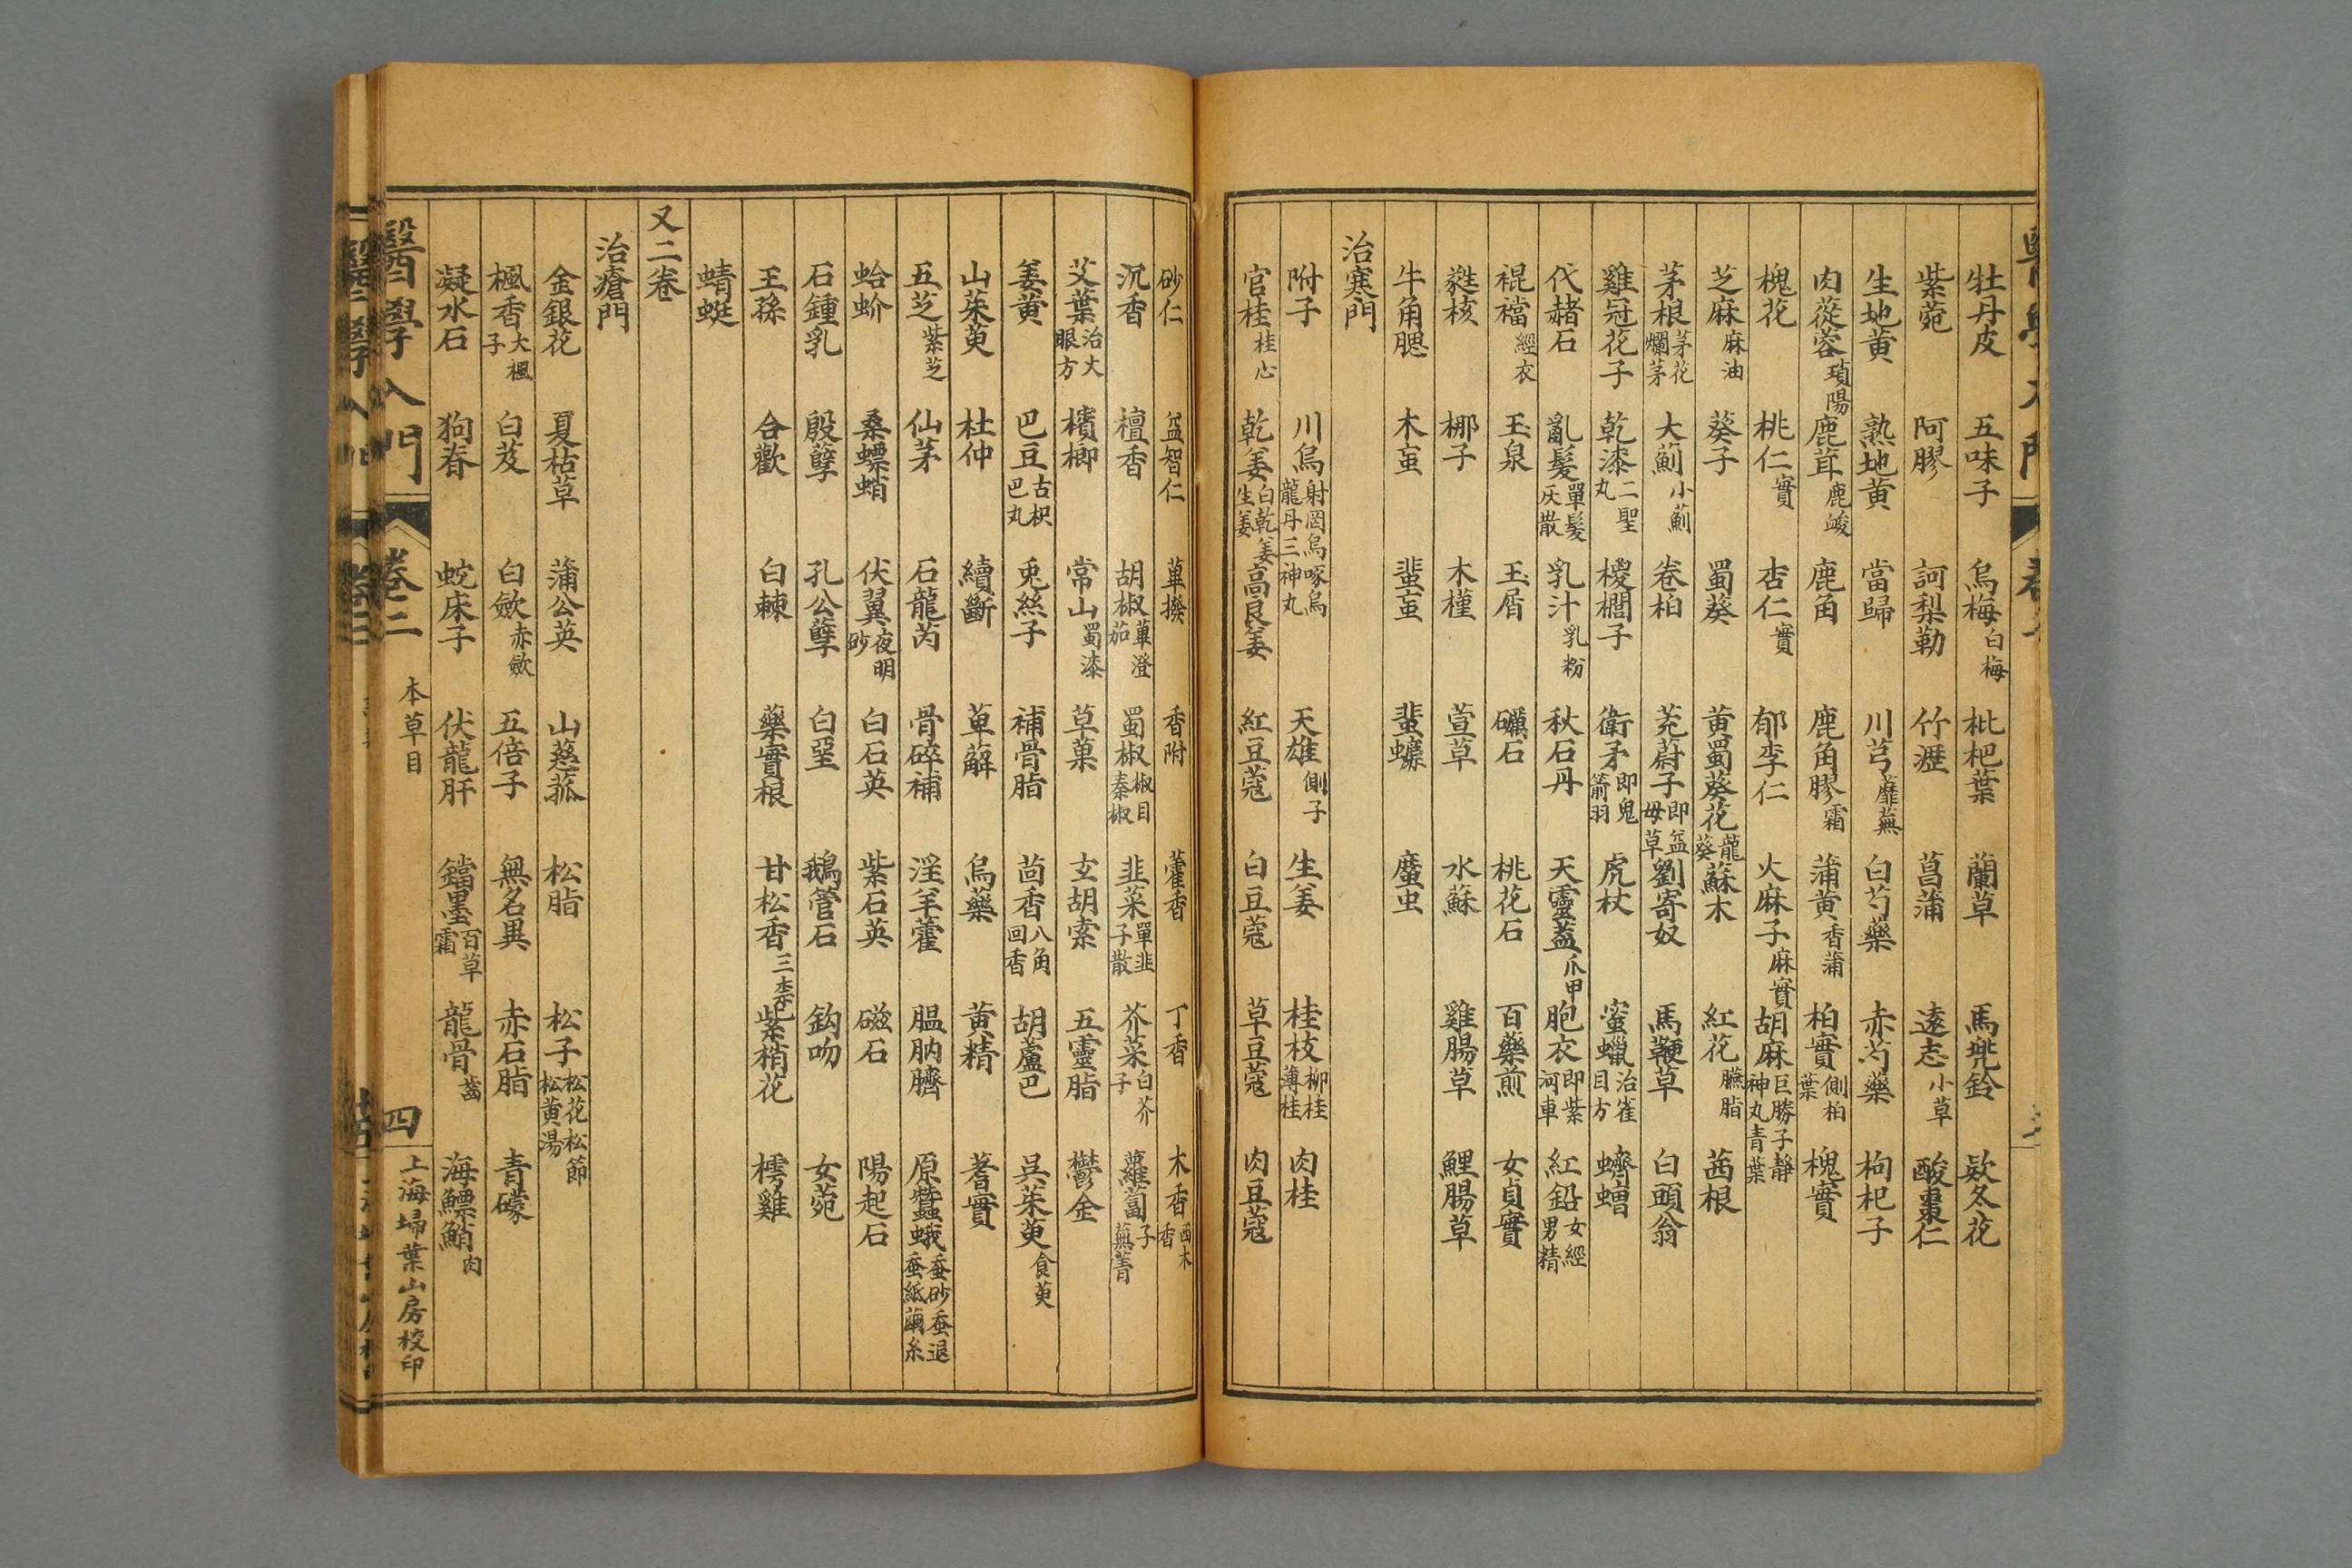 牡丹皮 五味子 烏梅白梅 枇杷葉 蘭草 馬兜鈴 欵冬花
紫菀 阿膠 訶梨勒 竹瀝 菖蒲 遠志小草 酸棗仁
生地黃 熟地黃 當歸 川芎蘼蕪 白芍藥 赤芍藥 枸杞子
肉蓯蓉瑣陽 鹿茸鹿峻 鹿角 鹿角膠霜 蒲黃香蒲 柏實側柏葉 槐實
槐花 桃仁實 杏仁實 郁李仁 火麻子麻實 胡麻巨勝子靜神丸青葉
芝麻麻油 葵子 蜀葵 黃蜀葵花龍葵 蘇木 紅花臙脂 茜根
茅根茅花爛茅 大薊小薊 卷柏 茺蔚子即益母草 劉寄奴 馬鞭草 白頭翁
雞冠花子 乾漆二聖丸 椶櫚子 衛矛即鬼箭羽 虎杖 蜜蠟治雀目方 蠐螬
代赭石 亂髮單髮灰散 乳汁乳粉 秋石丹 天靈蓋爪甲 胞衣即紫河車 紅鉛女經男精
裩襠經衣 玉泉 玉屑 礪石 桃花石 百藥煎 女貞實
蕤核 梛子 木槿 萱草 水蘇 雞腸草 鯉腸草
牛角腮 木䖟 蜚䖟 蜚蠊 䗪虫
治寒門
附子 川烏射罔烏啄烏龍丹三神丸 天雄側子 生姜 桂枝柳桂薄桂 肉桂
官桂桂心 乾姜白乾姜生姜 高良姜 紅豆蔻 白豆蔻 草豆蔻 肉豆蔻
砂仁 益智仁 蓽撥 香附 藿香 丁香 木香西木香
沉香 檀香 胡椒蓽澄茄 蜀椒椒目秦椒 韭菜單韭子散 芥菜白芥子 蘿蔔子蕪菁
艾葉治大眼方 檳榔 常山蜀漆 草菓 玄胡索 五靈脂 鬱金
姜黃 巴豆古枳巴丸 兎絲子 補骨脂 茴香八角回香 胡蘆巴 吳茱萸食萸
山茱萸 杜仲 續斷 萆薢 烏藥 黃精 蓍實
五芝紫芝 仙茅 石龍芮 骨碎補 淫羊藿 膃肭臍 原蠶蛾蚕砂蚕退蚕紙繭糸
蛤蚧 桑螵蛸 伏翼夜明砂 白石英 紫石英 磁石 陽起石
石鍾乳 殷孽 孔公孽 白堊 鵝管石 鈎吻 女菀
王孫 合歡 白棘 藥實根 甘松香三柰 紫稍花 樗雞
蜻蜓
又二卷
治瘡門
金銀花 夏枯草 蒲公英 山慈菰 松脂 松子松花松節松黃湯
楓香大楓子 白芨 白歛赤歛 五倍子 無名異 赤石脂 青礞
凝水石 狗脊 蛇床子 伏龍肝 鐺墨百草霜 龍骨齒 海鰾鮹肉
醫學入門 卷二 本草目 四 上海埽葉山房校印